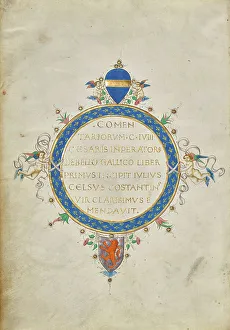 COMEN
TARIORVM · C · IVLII
CESARIS IMPERATORIS
DE BELLO GALLICO LIBER
PRIMVS INCIPIT IVLIVS
CELSVS COSTANTIN
VIR CLARISSIMVS E
MENDAVIT